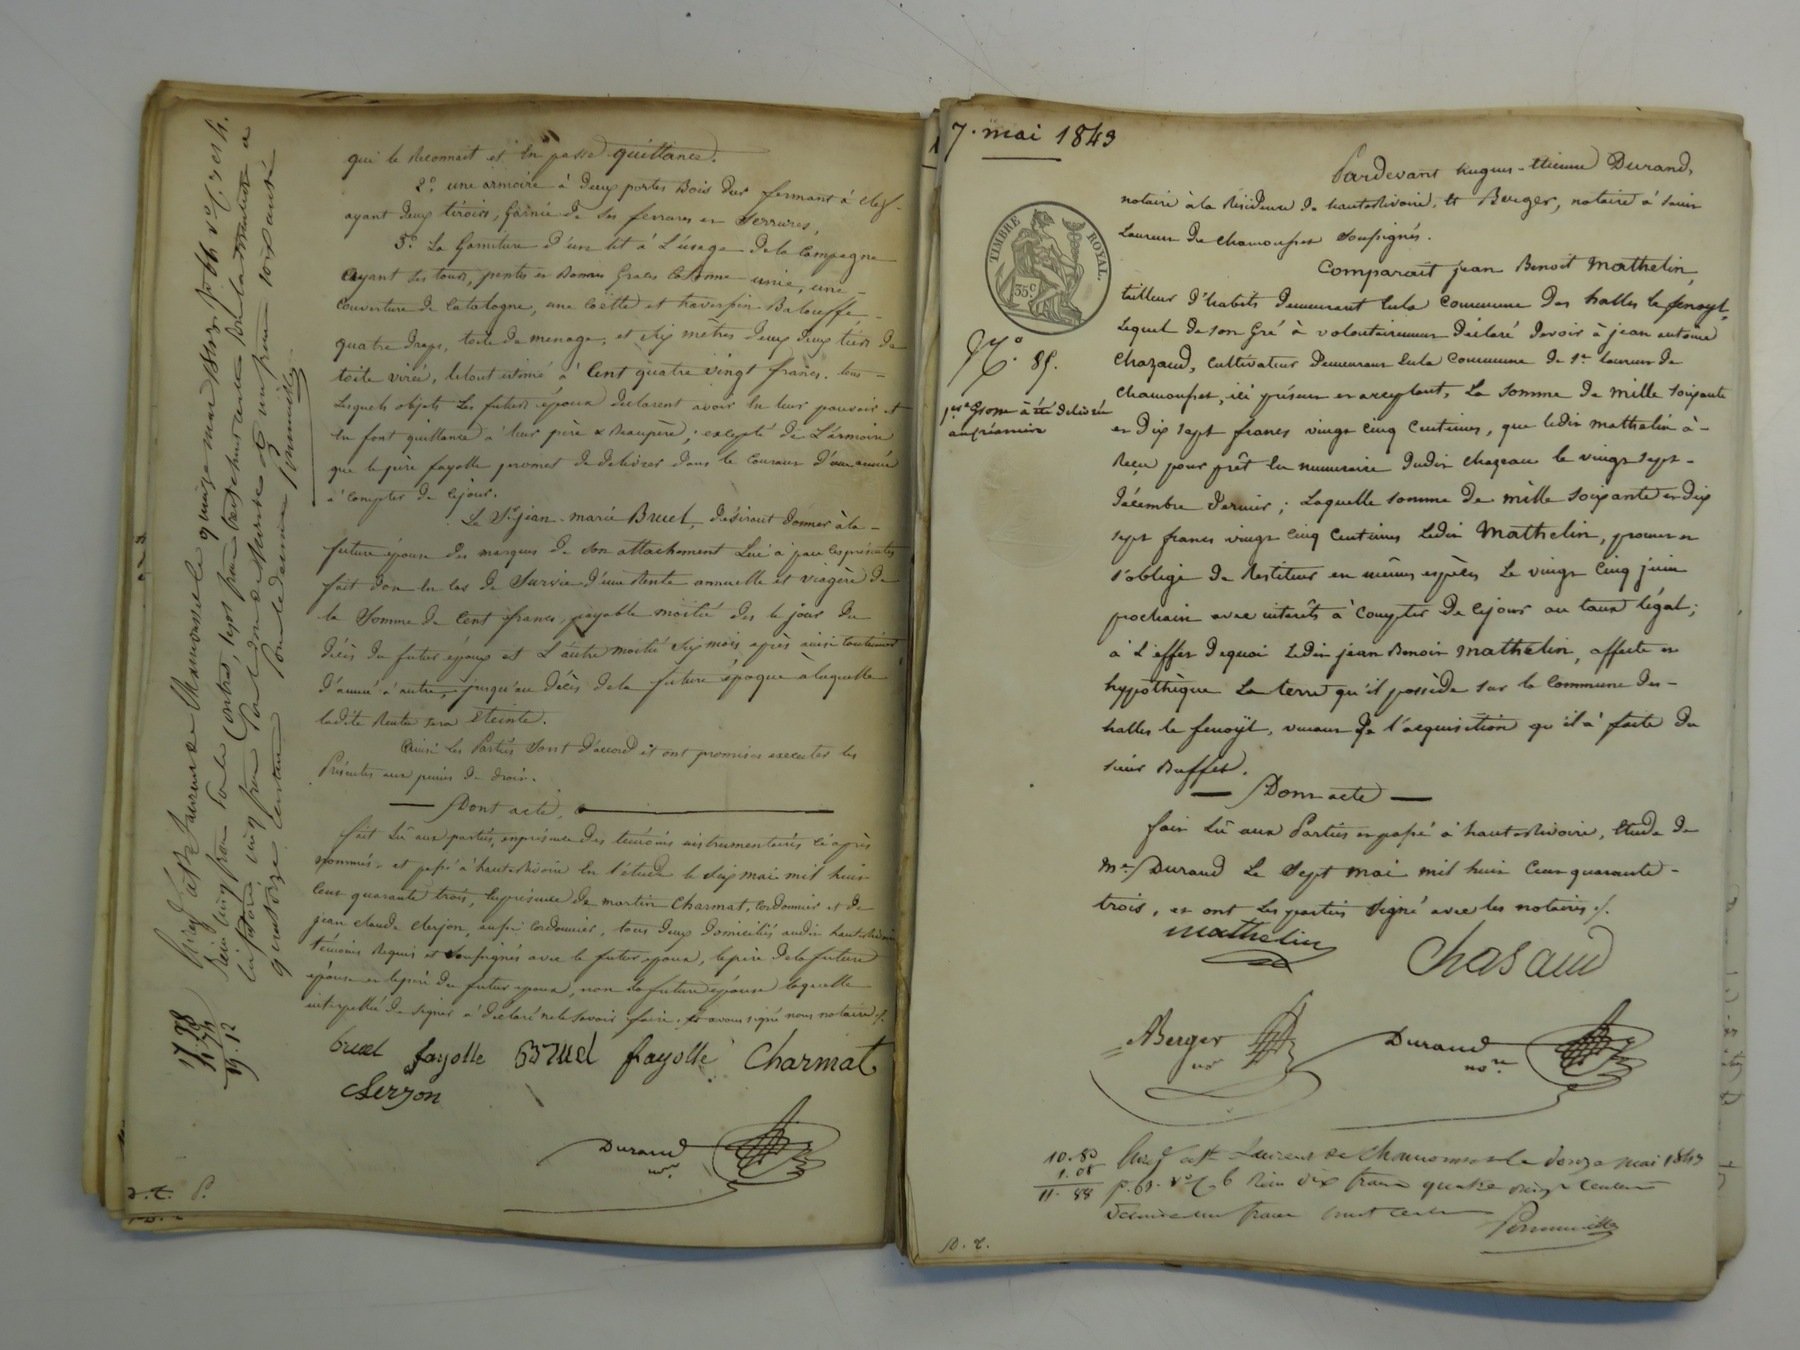 qui le reconnait et en passe quittance.
2.º une armoire à deux portes Bois dur fermant à clef
ayant deux tiroirs, garnie de ses ferrures et serrures,
3.º La garniture d'un lit à L'usage de la Campagne
ayant ses tours, pentes et bonnes graces
Couverture de Catalogne, une Coëtte et traverpin Balouffe,
quatre draps, toile de menage, et dix mètres deux tiers de
toile virée, letout estimé à Cent quatre vingt francs. tous
Lesquels objets Les futurs époux declarent avoir en leur pouvoir et
en font quittance à leur père & Beaupère; excepté de L'armoire
que le père fayolle promet de delivrer dans le Courant d'une année
à compter de cejour.
Le Sr. jean-marie Bruel, désirant donner à la
future épouse des marques de son attachement Lui à par cesprésentes
fait don en cas de Survie d'une Rente annuelle et viagère de
la Somme de Cent francs, payable moitié dès le jour du
décès du futur époux et L'autre moitié six mois après ainsi continuer
d'année à autre, jusqu'au décès dela future époque à laquelle
ladite Rente sera éteinte.
Ainsi les Parties sont d'accord et ont promises executer les
Présentes aux peines de droit.
Dont acte,
fait Lû aux parties, enprésence des témoins instrumentaires cé après
nommés, et passé à hauterivoire en l'étude le Six mai mil huit
Cent quarante trois, enprésence de martin Charmat, cordonnier et de
jean claude clerjon, aussi cordonnier, tous deux domiciliés audit hauterivoire
témoins Requis et soussignés avec le futur époux, lepère dela future
épouse et lepère du futur époux, non la future épouse laquelle
interpellée de signer à déclaré nele savoir faire, et avons signé nous notaire ./.
bruel fayolle Bruel fayolle Charmat
Clerzon
Durand
nre.
17.78
19.12
D. C. P.
7. mai 1843
Pardevant hugues-Etienne Durand,
notaire à la Residence de hauterivoire, Et Berger, notaire à Saint
Laurent de chamousset soussignés.
Comparait jean Benoit Mathelin,
tailleur d'habits demeurant Enla Commune des halles le fenoyl,
Lequel de son Gré à volontairement déclaré devoir à jean antoine
Chazaud, Cultivateur Demeurant Enla Commune de St. Laurent de
Chamousset, ici présent et acceptant, La Somme de mille Soixante
et Dix sept francs vingt cinq Centimes, que ledit mathelin à
Reçu pour prêt En numeraire dudit Chazeau le vingt sept
Décembre dernier; Laquelle somme de mille soixante et Dix
sept francs vingt cinq Centimes Ledit Mathelin, promet et
s'oblige de Restituer en mêmes espèces Le vingt cinq juin
prochain avec intérêts à compter De cejour au taux légal;
à L'effet dequoi Ledit jean Benoit mathelin, affecte et
hypothèque La terre qu'il possède sur la Commune des
halles le fenoÿl, venant De l'acquisition qu'il à faite du
sieur Buffet.
Dont acte
fait Lû aux Parties et passé à hauterivoire, Etude de
Me. Durand Le Sept mai mil huit Cent quarante
trois, et ont Les parties signé avec les notaires ./.
mathelin
Chasaud
ABerger
nre
Durand
nore.
TIMBRE ROYAL.
35.c
No. 85.
1ere Grosse à été delivrée
au créancier
10.80
1.08
11.88
Enreg. à St. Laurent de Chamousset le douze mai 1843
Reçu dix francs quatre vingt centimes
Décime un franc huit centimes
D. C.